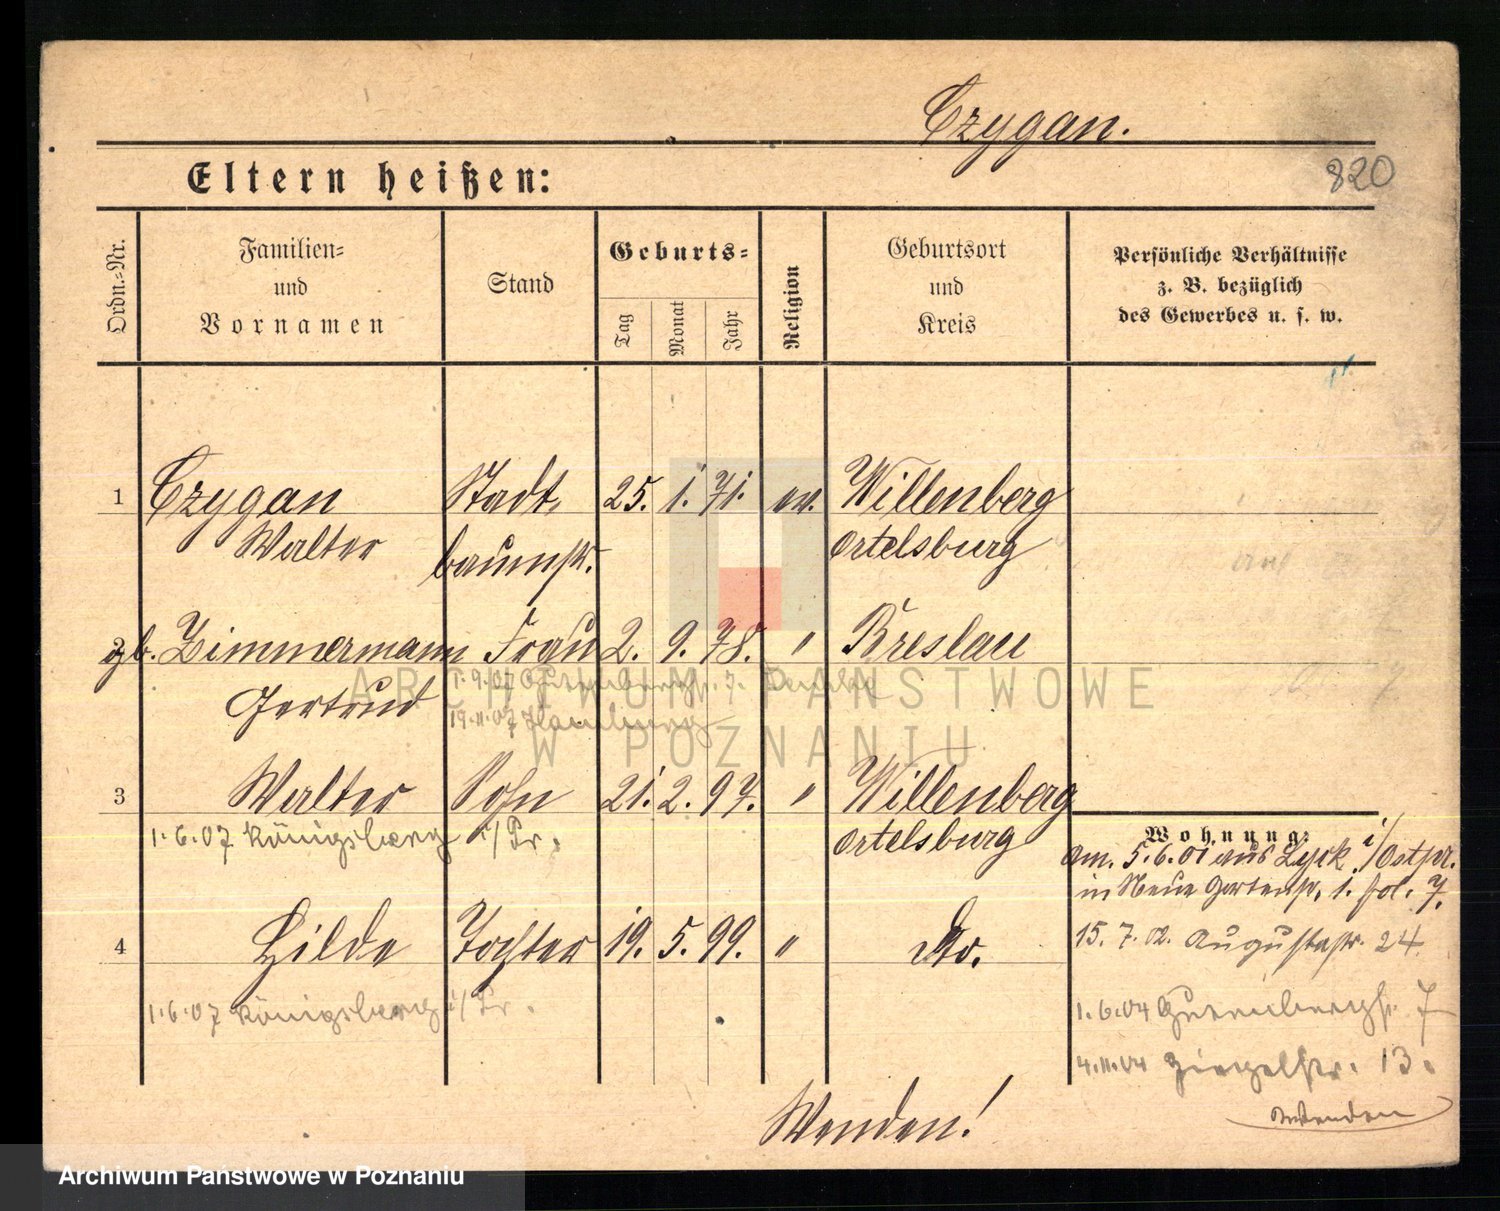 Czygan.
820
Eltern heißen:
Ordn.-Nr.
Familien-
und
Vornamen
Stand
Geburts-
Tag
Monat
Jahr
Religion
Geburtsort
und
Kreis
Persönliche Verhältnisse
z. B. bezüglich
des Gewerbes u. s. w.
1 Czygan Stadt- 25. 1. 71. ev. Willenberg
Walter baumstr. Ortelsburg
2 gb. Zimmermann Frau 2. 9. 78. " Breslau
1.9.07 Gutenbergstr. 7.
Gertrud
19.11.07 Hamburg
3 Walter Sohn 21. 2. 97. " Willenberg
1.6.07 Königsberg i/Pr. Ortelsburg
Wohnung:
Am. 5.6.01 aus Lyck i/Ostpr.
in Neue Gartenstr. 1. 7.
4 Hilde Tochter 19. 5. 99. " do.
15. 7. 02. Augustastr. 24
1.6.07 Königsberg i/Pr.
1.6.04 Gutenbergstr. 7
4.11.04 Ziegelstr. 13.
Wenden
Wenden!
ARCHIWUM PAŃSTWOWE
W POZNANIU
Archiwum Państwowe w Poznaniu